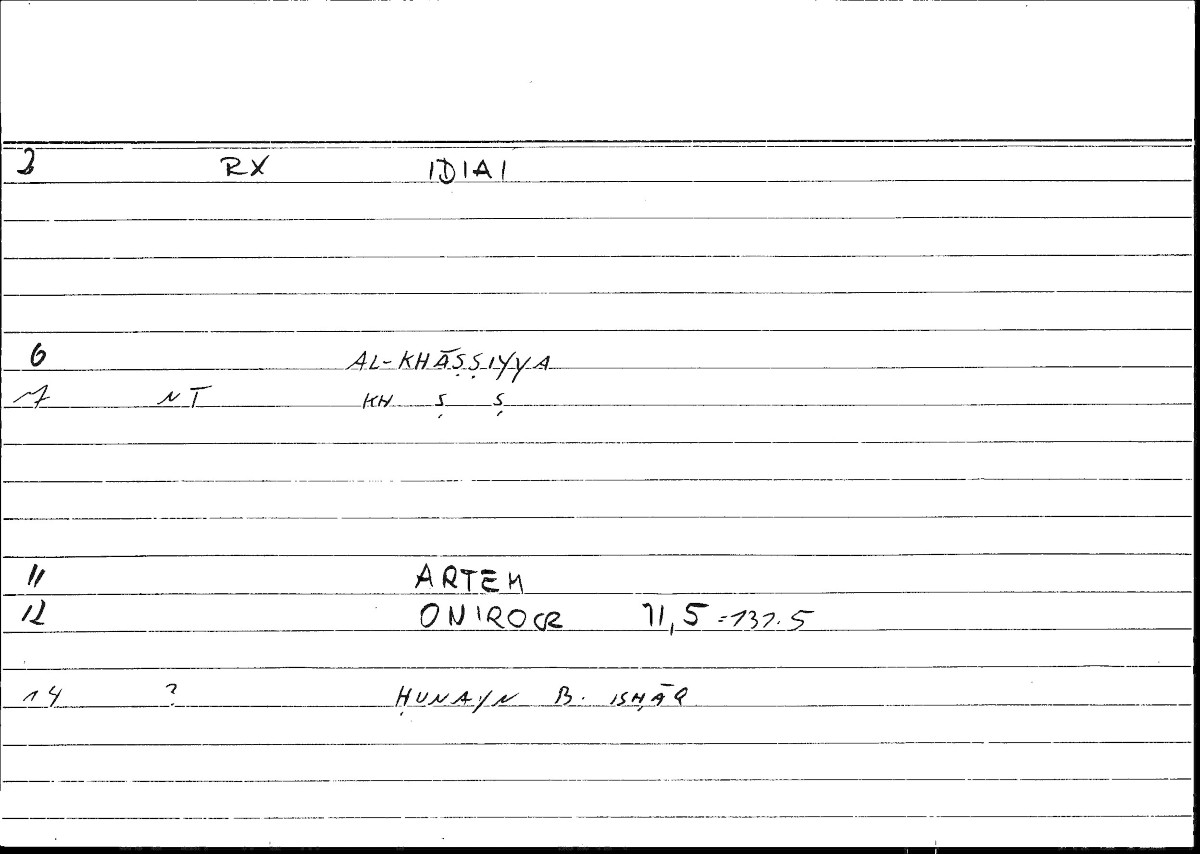 3 RX IDIAI
6 AL-KHĀṢṢIYYA
7 NT KH Ṣ Ṣ
11 ARTEM
12 ONIROCR 71,5 = 131.5
14 ? ḤUNAYN B. ISḤĀQ